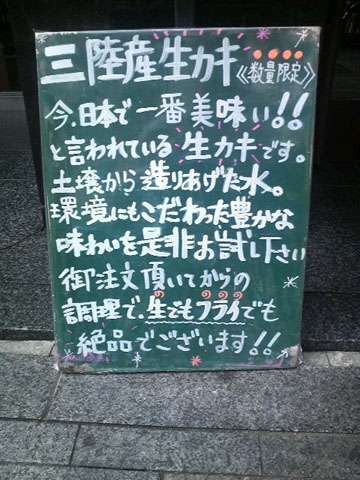 三陸産生カキ《数量限定》
今、日本で一番美味い!!
と言われている生カキです。
土壌から造りあげた水。
環境にもこだわった豊かな
味わいを是非お試し下さい
御注文頂いてからの
調理で、生でもフライでも
絶品でございます!!